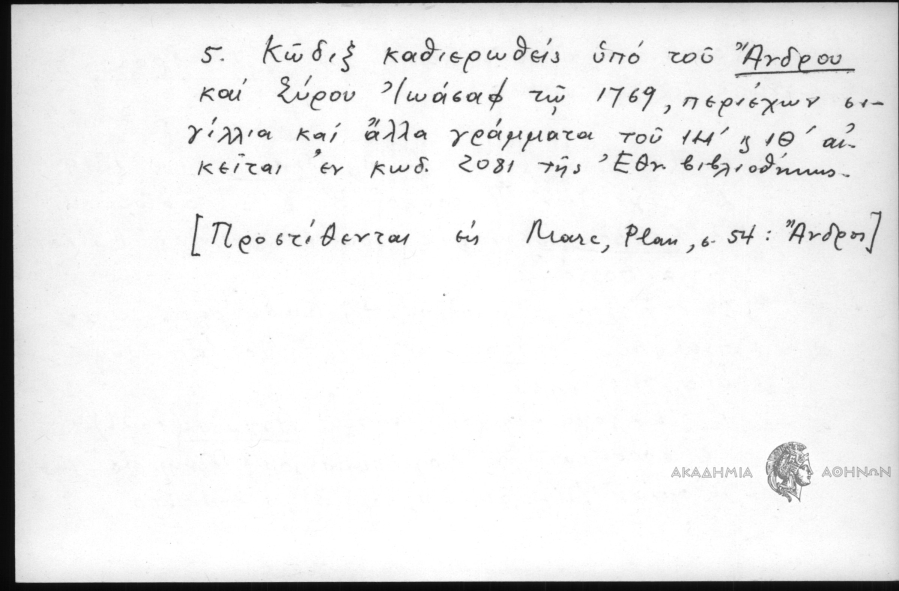 5. Κῶδιξ καθιερωθείς ὑπό τοῦ Ἄνδρου
καί Σύρου Ἰωάσαφ τῷ 1769, περιέχων σι-
γίλλια καί ἄλλα γράμματα τοῦ ΙΗ' ϗ ΙΘ' αἰ.
κεῖται ἐν κωδ. 2081 τῆς Ἐθν. βιβλιοθήκης.
[Προστίθενται εἰς Marc, Plan, σ. 54: Ἄνδρος]
ΑΚΑΔΗΜΙΑ ΑΘΗΝΩΝ